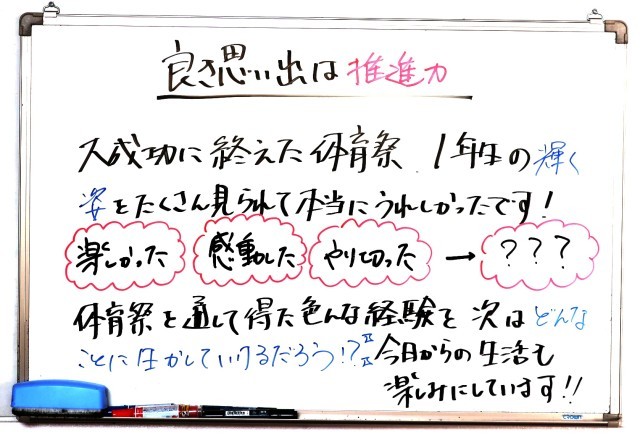 良き思い出は推進力
大成功に終えた体育祭 1年生の輝く
姿をたくさん見られて本当にうれしかったです!
楽しかった 感動した やり切った → ???
体育祭を通して得た色んな経験を次はどんな
ことに生かしていけるだろう!? 今日からの生活も
楽しみにしています!!
CROWN